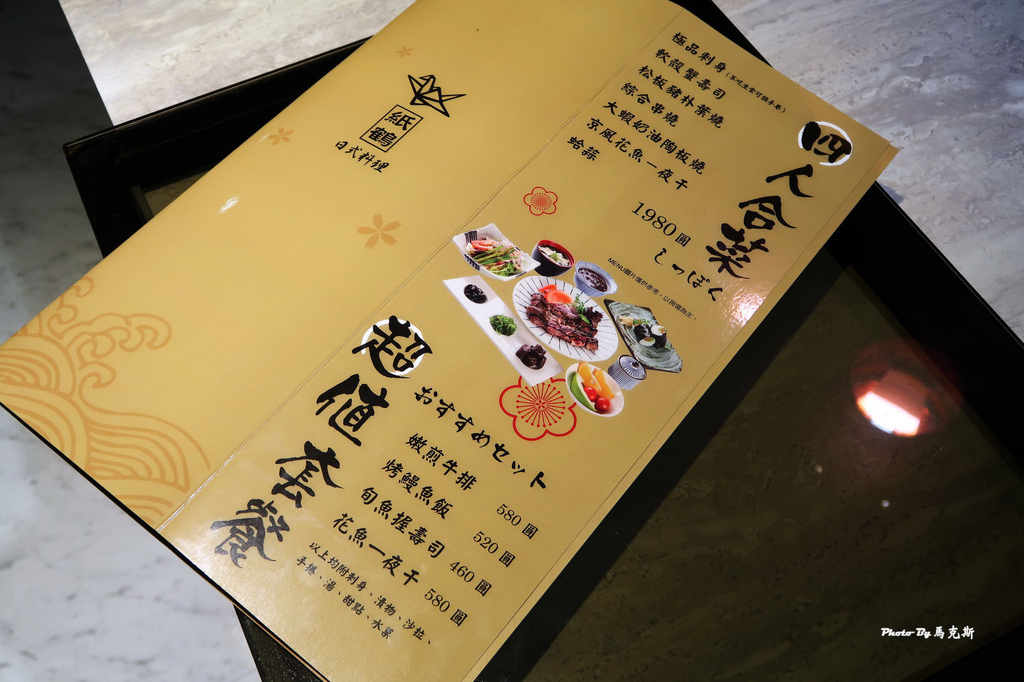 四人合菜
極品刺身(不吃生食可換手卷)
軟殼蟹壽司
松板豬朴葉燒
綜合串燒
大蝦奶油陶板燒
京風花魚一夜干
蛤蒜
1980圓
しっぽく
MENU圖片僅供參考,以現場為主。
紙鶴
日式料理
超值套餐
おすすめセット
嫩煎牛排 580圓
烤鰻魚飯 520圓
旬魚握壽司 460圓
花魚一夜干 580圓
以上均附刺身、漬物、沙拉、
手捲、湯、甜點、水菓
Photo By 馬克斯